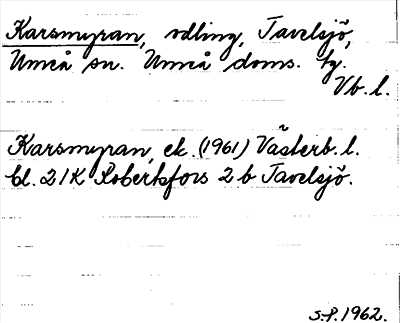 Karsmyran, odling, Tavelsjö,
Umeå sn. Umeå doms. tg.
Vb. l.
Karsmyran, ek. (1961) Västerb. l.
bl. 21K Robertsfors 2 b Tavelsjö.
S.P. 1962.